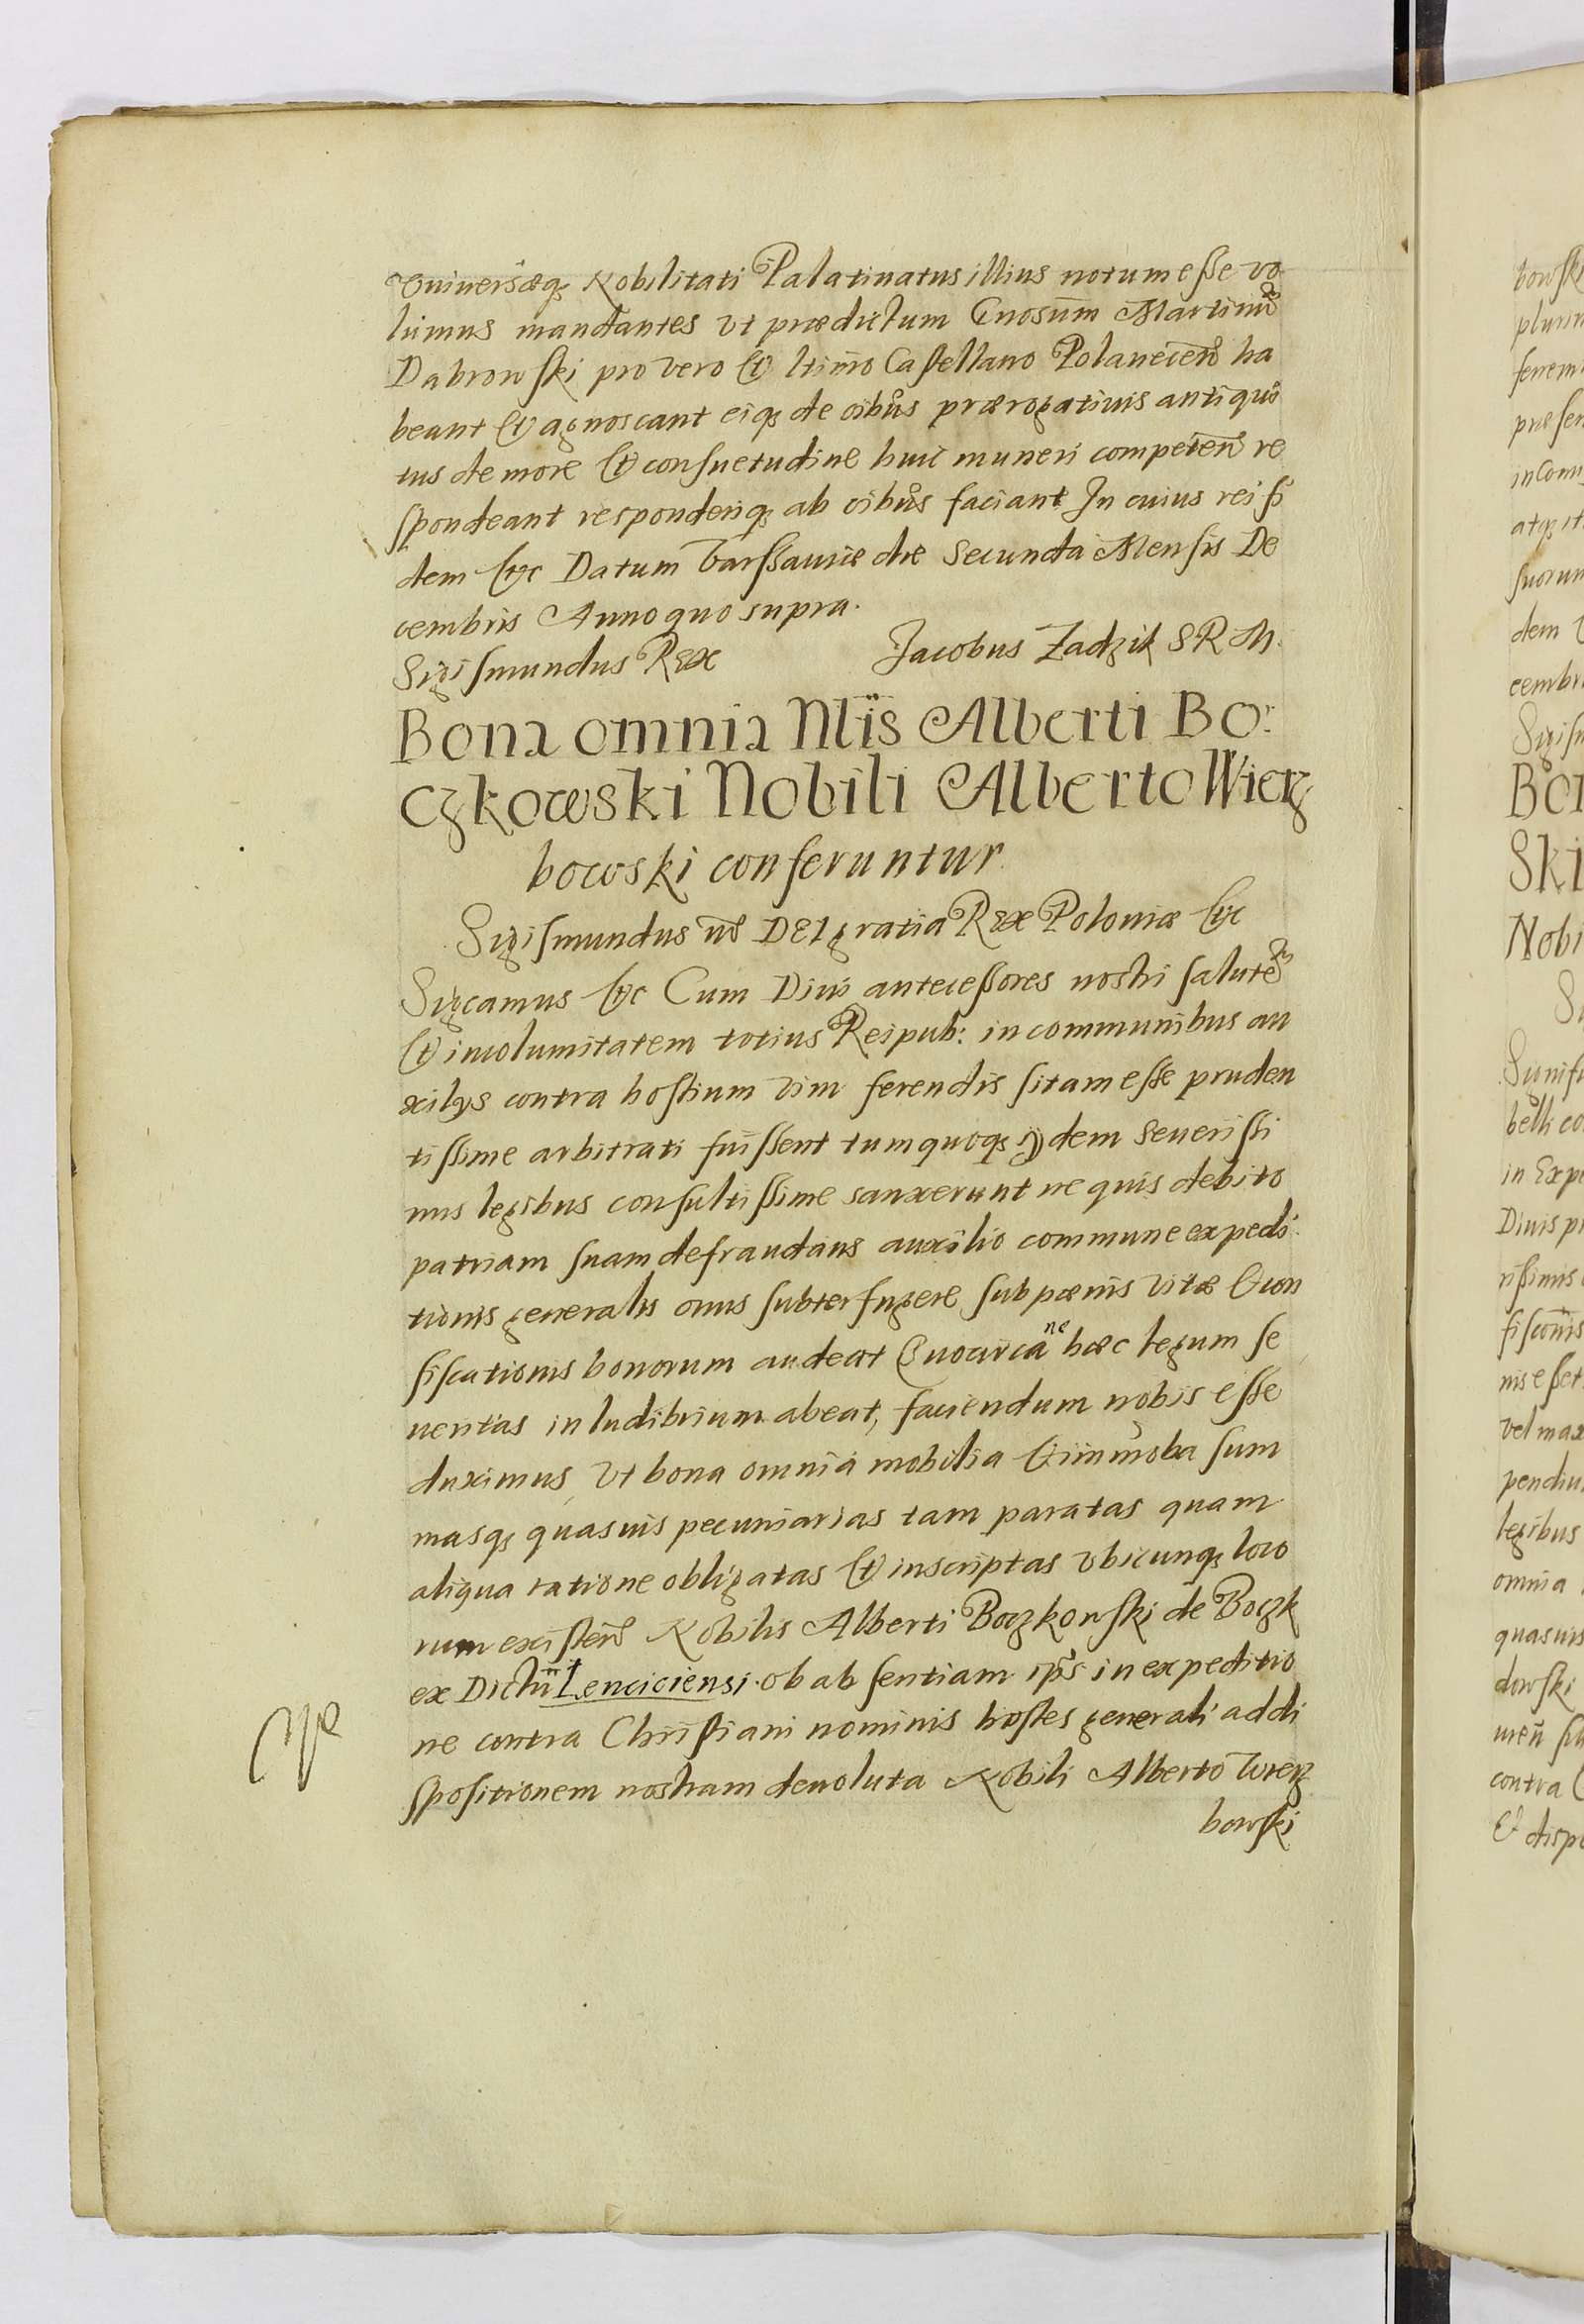 Vniversæq; Nobilitati Palatinatus illius notum esse vo
lumus mandantes vt prædictum Gnosum Martinū
Dabrowski pro vero & ltimo Castellano Polanecen̄ ha
beant & agnoscant eiq; de oibus prærogatiuis antiquo
tus de more & consuetudine huic muneri competen̄ re
spondeant responderiq; ab oibus faciant In cuius rei fi
dem &c Datum Varssauiæ die Secunda Mensis De
cembris Anno quo supra.
Sigismundus Rex Jacobus Zadzik SRM.
Bona omnia Nlis Alberti Bo:
czkowski Nobili Alberto Wierz
bowski conferuntur.
Sigismundus iiis DEI gratia Rex Poloniæ &c
Sigcamus &c Cum Diui antecessores nostri salutē
& incolumitatem totius Reipub: in communibus au
xilys contra hostium vim ferendis sitam esse pruden
tissime arbitrati fuissent tum quoq; ijdem Seuerissi
mis legibus consultissime sanxerunt ne quis debito
patriam suam defraudans auxilio commune expedi
tionis generalis onus subterfugere sub pœnis vitæ & con
fiscationis bonorum audeat Quocirca ne hæc legum se
ueritas in ludibrium abeat, faciendum nobis esse
duximus, vt bona omnia mobilia & immoba sum
masq; quasuis pecuniarias tam paratas quam
aliqua ratione obligatas & inscriptas vbicunq; loco
rum existen̄ Nobilis Alberti Boczkowski de Boczk
ex Dictu Lenciciensi ob absentiam ips in expeditio
ne contra Christiani nominis hostes generali ad di
spositionem nostram deuoluta Nobili Alberto Wierz
bowski
bowski
plurim
in Com
atq; it
suorum
dem
cembri
Sigism
Bon
Ski
Nobi
belli co
in Expe
Diuis pr
rissimis
nis esset
vel max
pendiu
legibus
omnia
quasuis
dowski
contra
& dispo